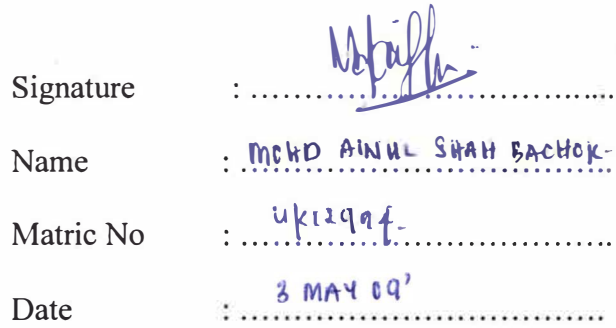 Signature :
Name : MOHD AINUL SHAH BACHOK
Matric No : UK12994
Date : 3 MAY 09'